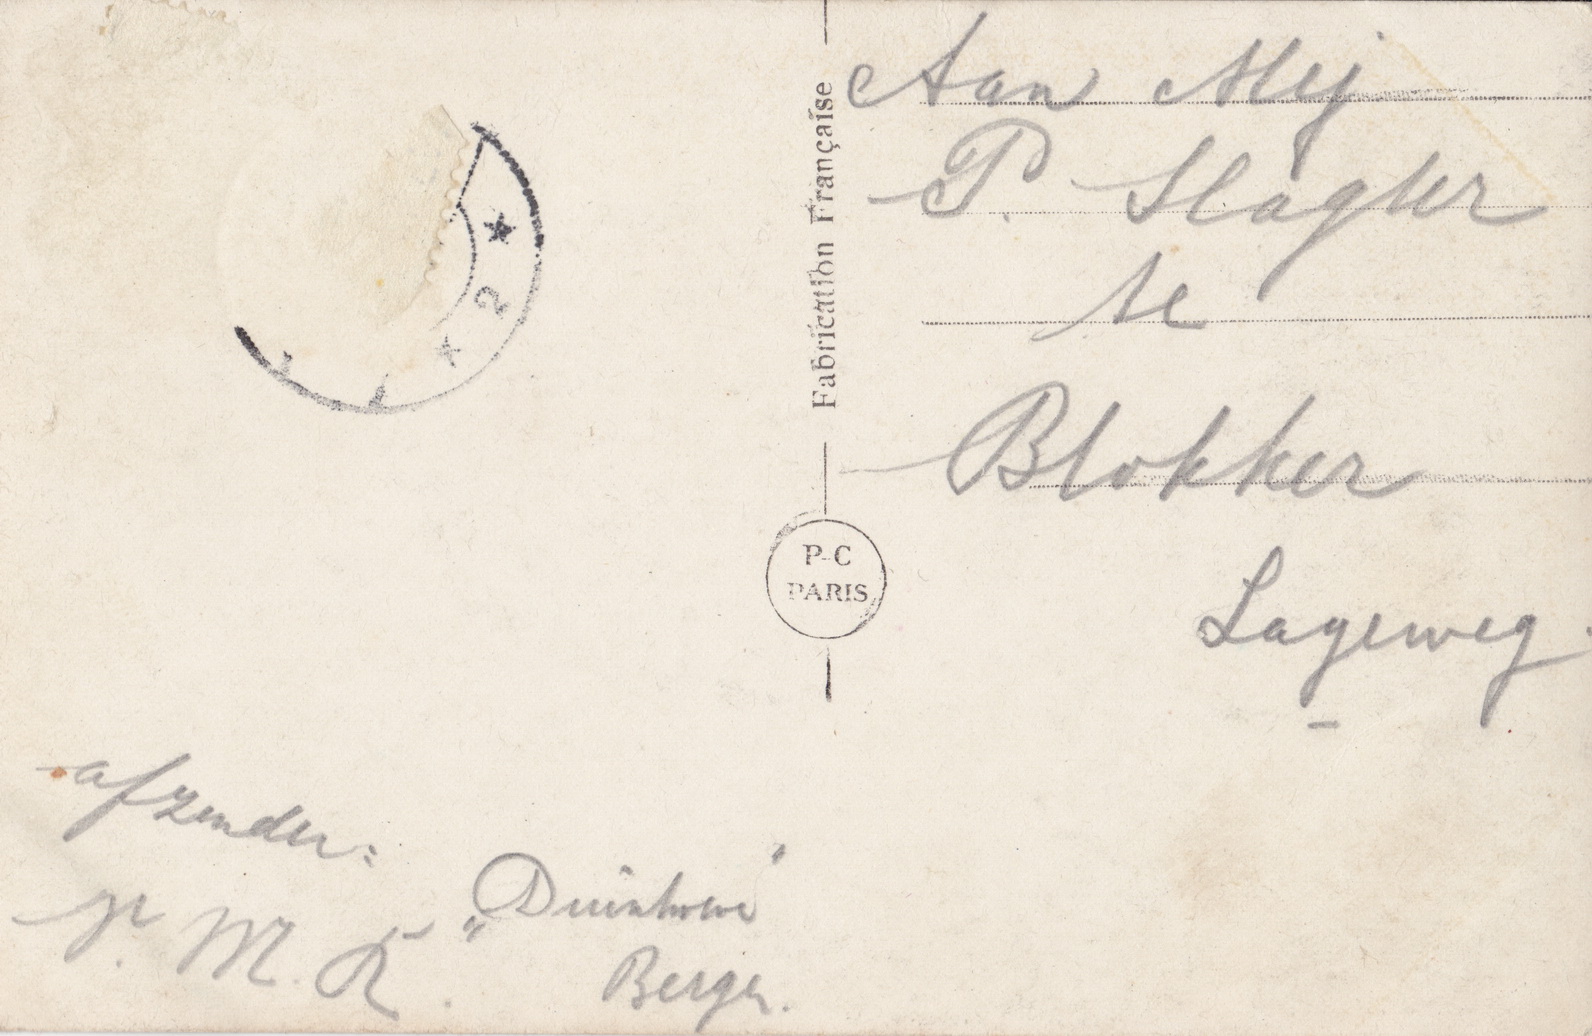 Aan Mej
P. Slagter
te
Blokker
Lageweg.
Fabrication Française
P-C
PARIS
2
afzender:
M. K. "Duinhoeve"
Bergen.